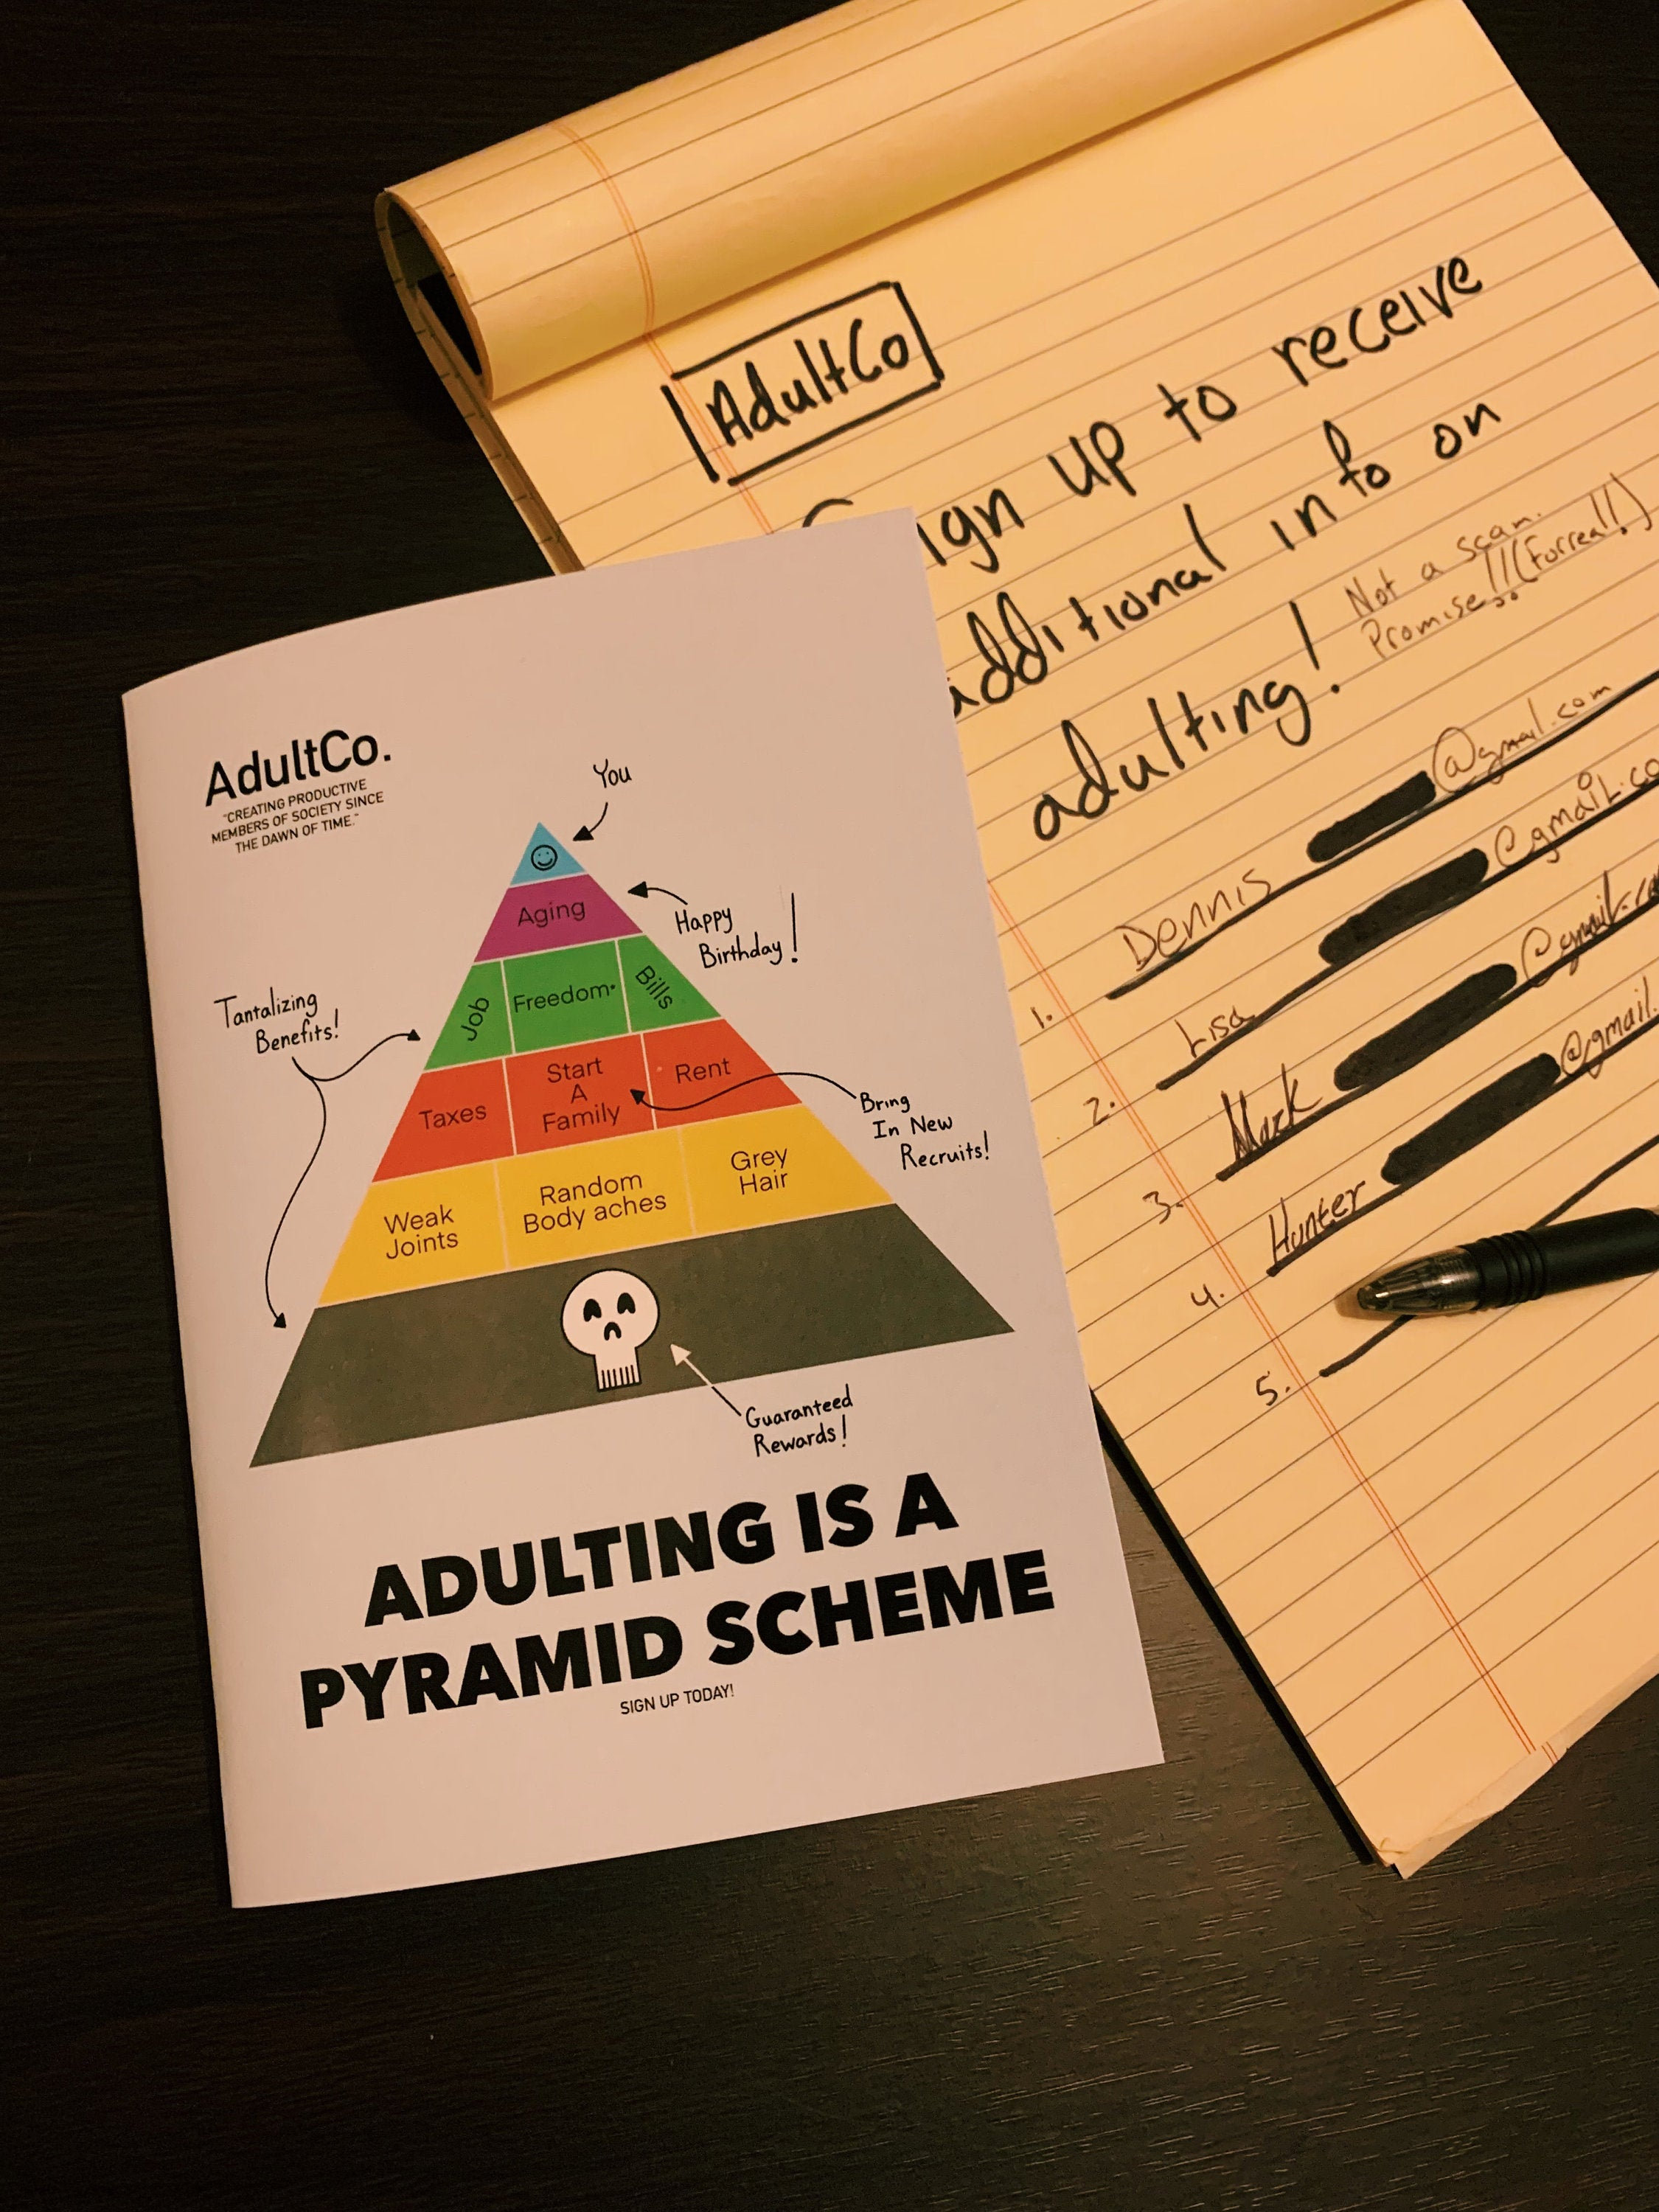 AdultCo.
"CREATING PRODUCTIVE
MEMBERS OF SOCIETY SINCE
THE DAWN OF TIME."
You
Aging
Happy
Birthday!
Tantalizing
Benefits!
Job
Freedom*
Bills
Taxes
Start
A
Family
Rent
Bring
In New
Recruits!
Weak
Joints
Random
Body aches
Grey
Hair
Guaranteed
Rewards!
ADULTING IS A
PYRAMID SCHEME
SIGN UP TODAY!
AdultCo
Sign up to receive
additional info on
adulting!
Not a scam.
Promise!! (Forreal!!)
1. Dennis @gmail.com
2. Lisa @gmail.co
3. Mark @gmail.co
4. Hunter @gmail.
5.